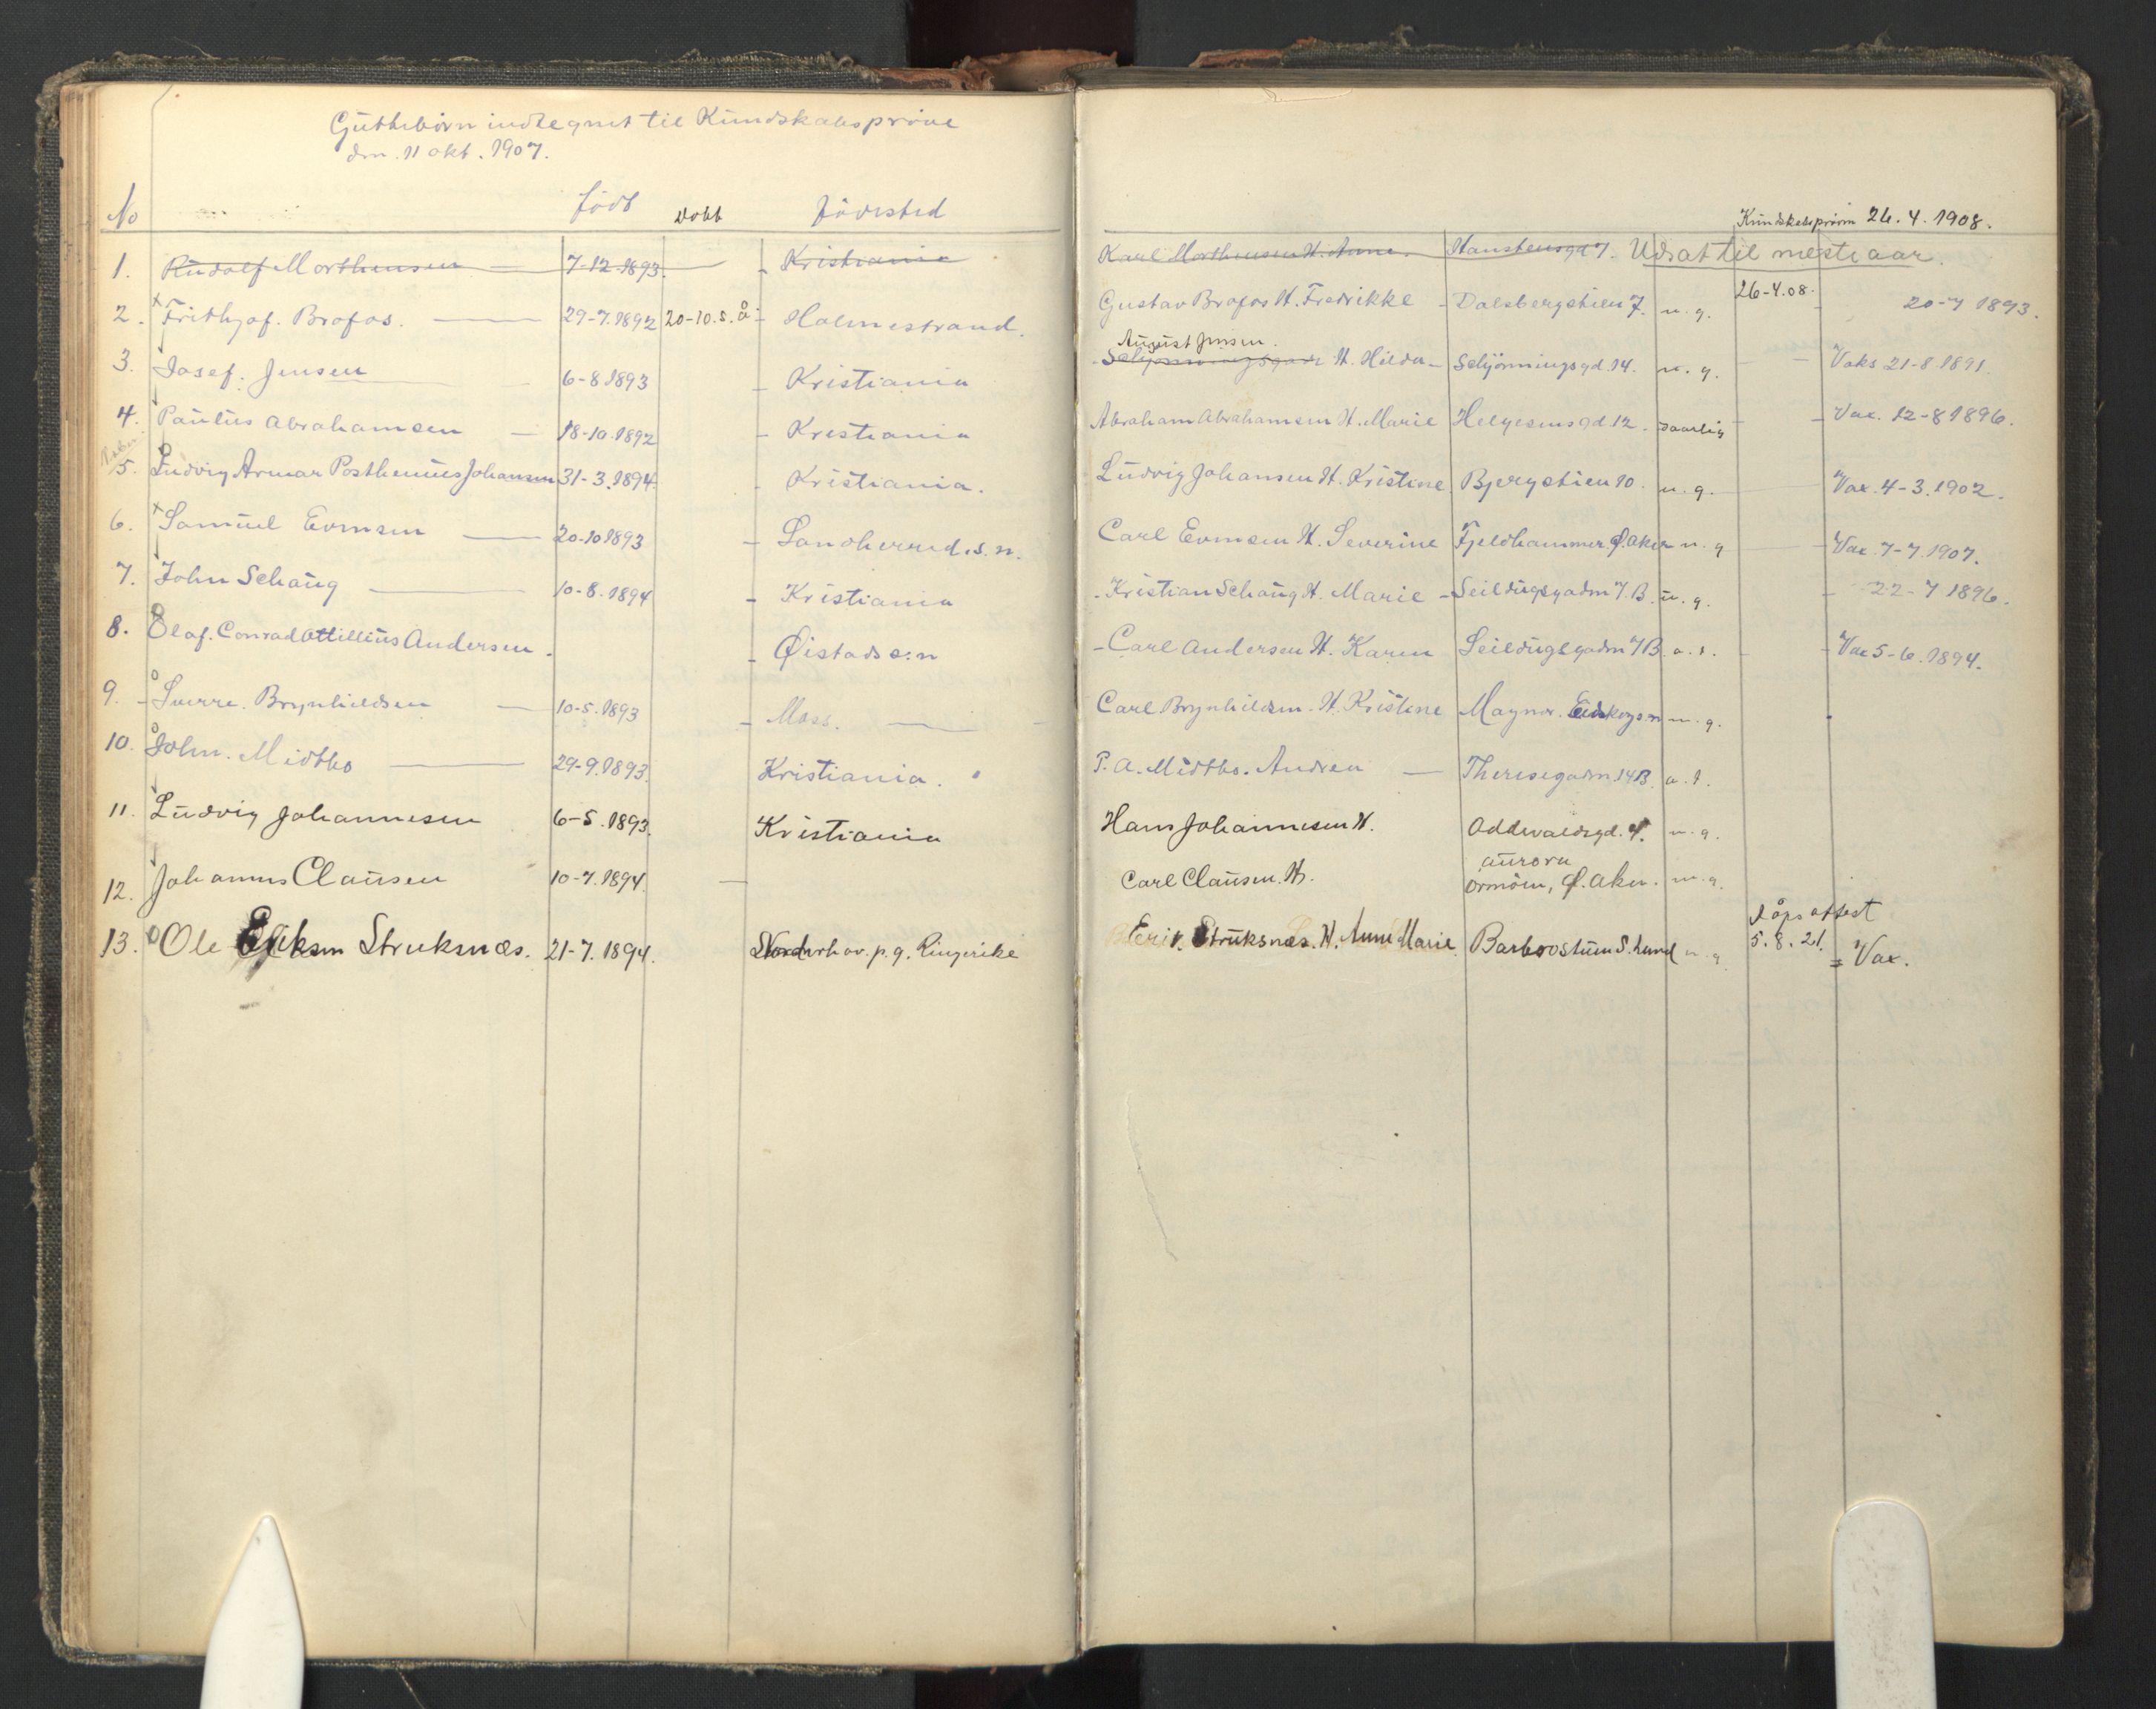 Guttebörn indtegnet til Kundskabspröve
den 11 okt. 1907.
No födt Döbt Födested
Kundskabspröven 26.4.1908.
1. Rudolf Morthensen 7-12-1893 Kristiania Karl Morthensen H. Anne. Hansteensgd 7. Udsat til næste aar.
2. x Frithjof. Brofos. 29-7.1892 20-10.s.å. Holmestrand. Gustav Brofos H. Fredrikke Dalsbergstien 7. m.g. 26-4.08. 20-7 1893.
August Jensen.
3. Josef. Jensen 6-8 1893 Kristiania H. Hilda Schjönningsgd. 14. m.g. Vaks 21-8.1891.
4. Paulus Abrahamsen 18-10.1892 Kristiania Abraham Abrahamsen H. Marie Helgesensgd 12. daarlig Vax. 12-8 1896.
5. Ludvig Armar Posthemius Johansen 31-3.1894 Kristiania. Ludvig Johansen H. Kristine Bjergstien 10. m.g. Vax. 4-3.1902.
6. x Samuel Evensen 20-10 1893 Sandherred.s.n. Carl Evensen H. Severine Fjeldhammer Ø. Aker m.g Vax. 7-7.1907.
7. John Schaug 10-8.1894 Kristiania Kristian Schaug H. Marie Seildugsgaden 7.B. m.g. 22-7 1896.
8. Olaf. Conrad Attillius Andersen. Øistads s:n Carl Andersen H. Karen Seildugsgaden 7B. a.t. Vax 5-6.1894.
9. Sverre. Brynhildsen 10-5.1893 Moss. Carl Brynhildsen. H. Kristine Magnor. Eidskogen m.g.
10. John. Midtbo 29-9.1893. Kristiania. P. A. Midtbo. Andrea Theresegaden 14B. a.t.
11. Ludvig Johannesen 6-5.1893. Kristiania Hans Johannesen H. Oddvaldsgd. 4. m.g.
Aurora
12. Johannes Clausen 10-7.1894. Carl Clausen. H. Ormöen, Ø. Aker. m.g.
Dåpsattest
13. Ole Eriksen Struksnæs. 21-7.1894. Norderhov. p.g. Ringerike Erik Struksnæs. H. Anne Marie Barbrostuen S. Lund m.g. 5.8.21. = Vax.